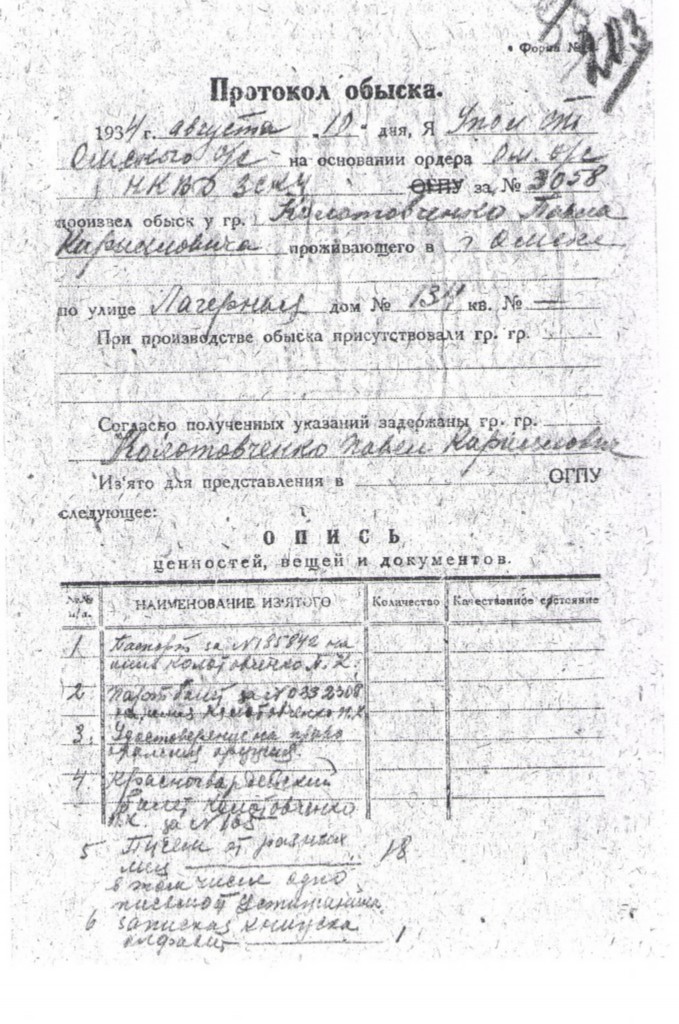 Форма №
203
Протокол обыска.
1934 г. августа „10“ дня, Я Упол
Омского о/с на основании ордера Ом. о/с
НКВД ЗСКУ ОГПУ за № 3058
произвел обыск у гр. Колотовченко Павла
Кирилловича проживающего в г Омске
по улице Лагерный дом № 134 кв. № —
При производстве обыска присутствовали гр. гр.
Согласно полученных указаний задержаны гр. гр.
Колотовченко Павел Кириллович
Из'ято для представления в ОГПУ
следующее:
ОПИСЬ
ценностей, вещей и документов.
№№ п/п. НАИМЕНОВАНИЕ ИЗ'ЯТОГО Количество Качественное состояние
1 Паспорт за № 185842 на
имя Колотовченко П. К.
2 Партбилет за № 0332308
на имя Колотовченко П.К
3. Удостоверение на право
хранения оружия.
4 Красногвардейский
билет Колотовченко
П.К. за № 165
5 Писем от разных 18
лиц
в этом числе одно
письмо Устюжанина
6 Записная книжка
алфавит 1